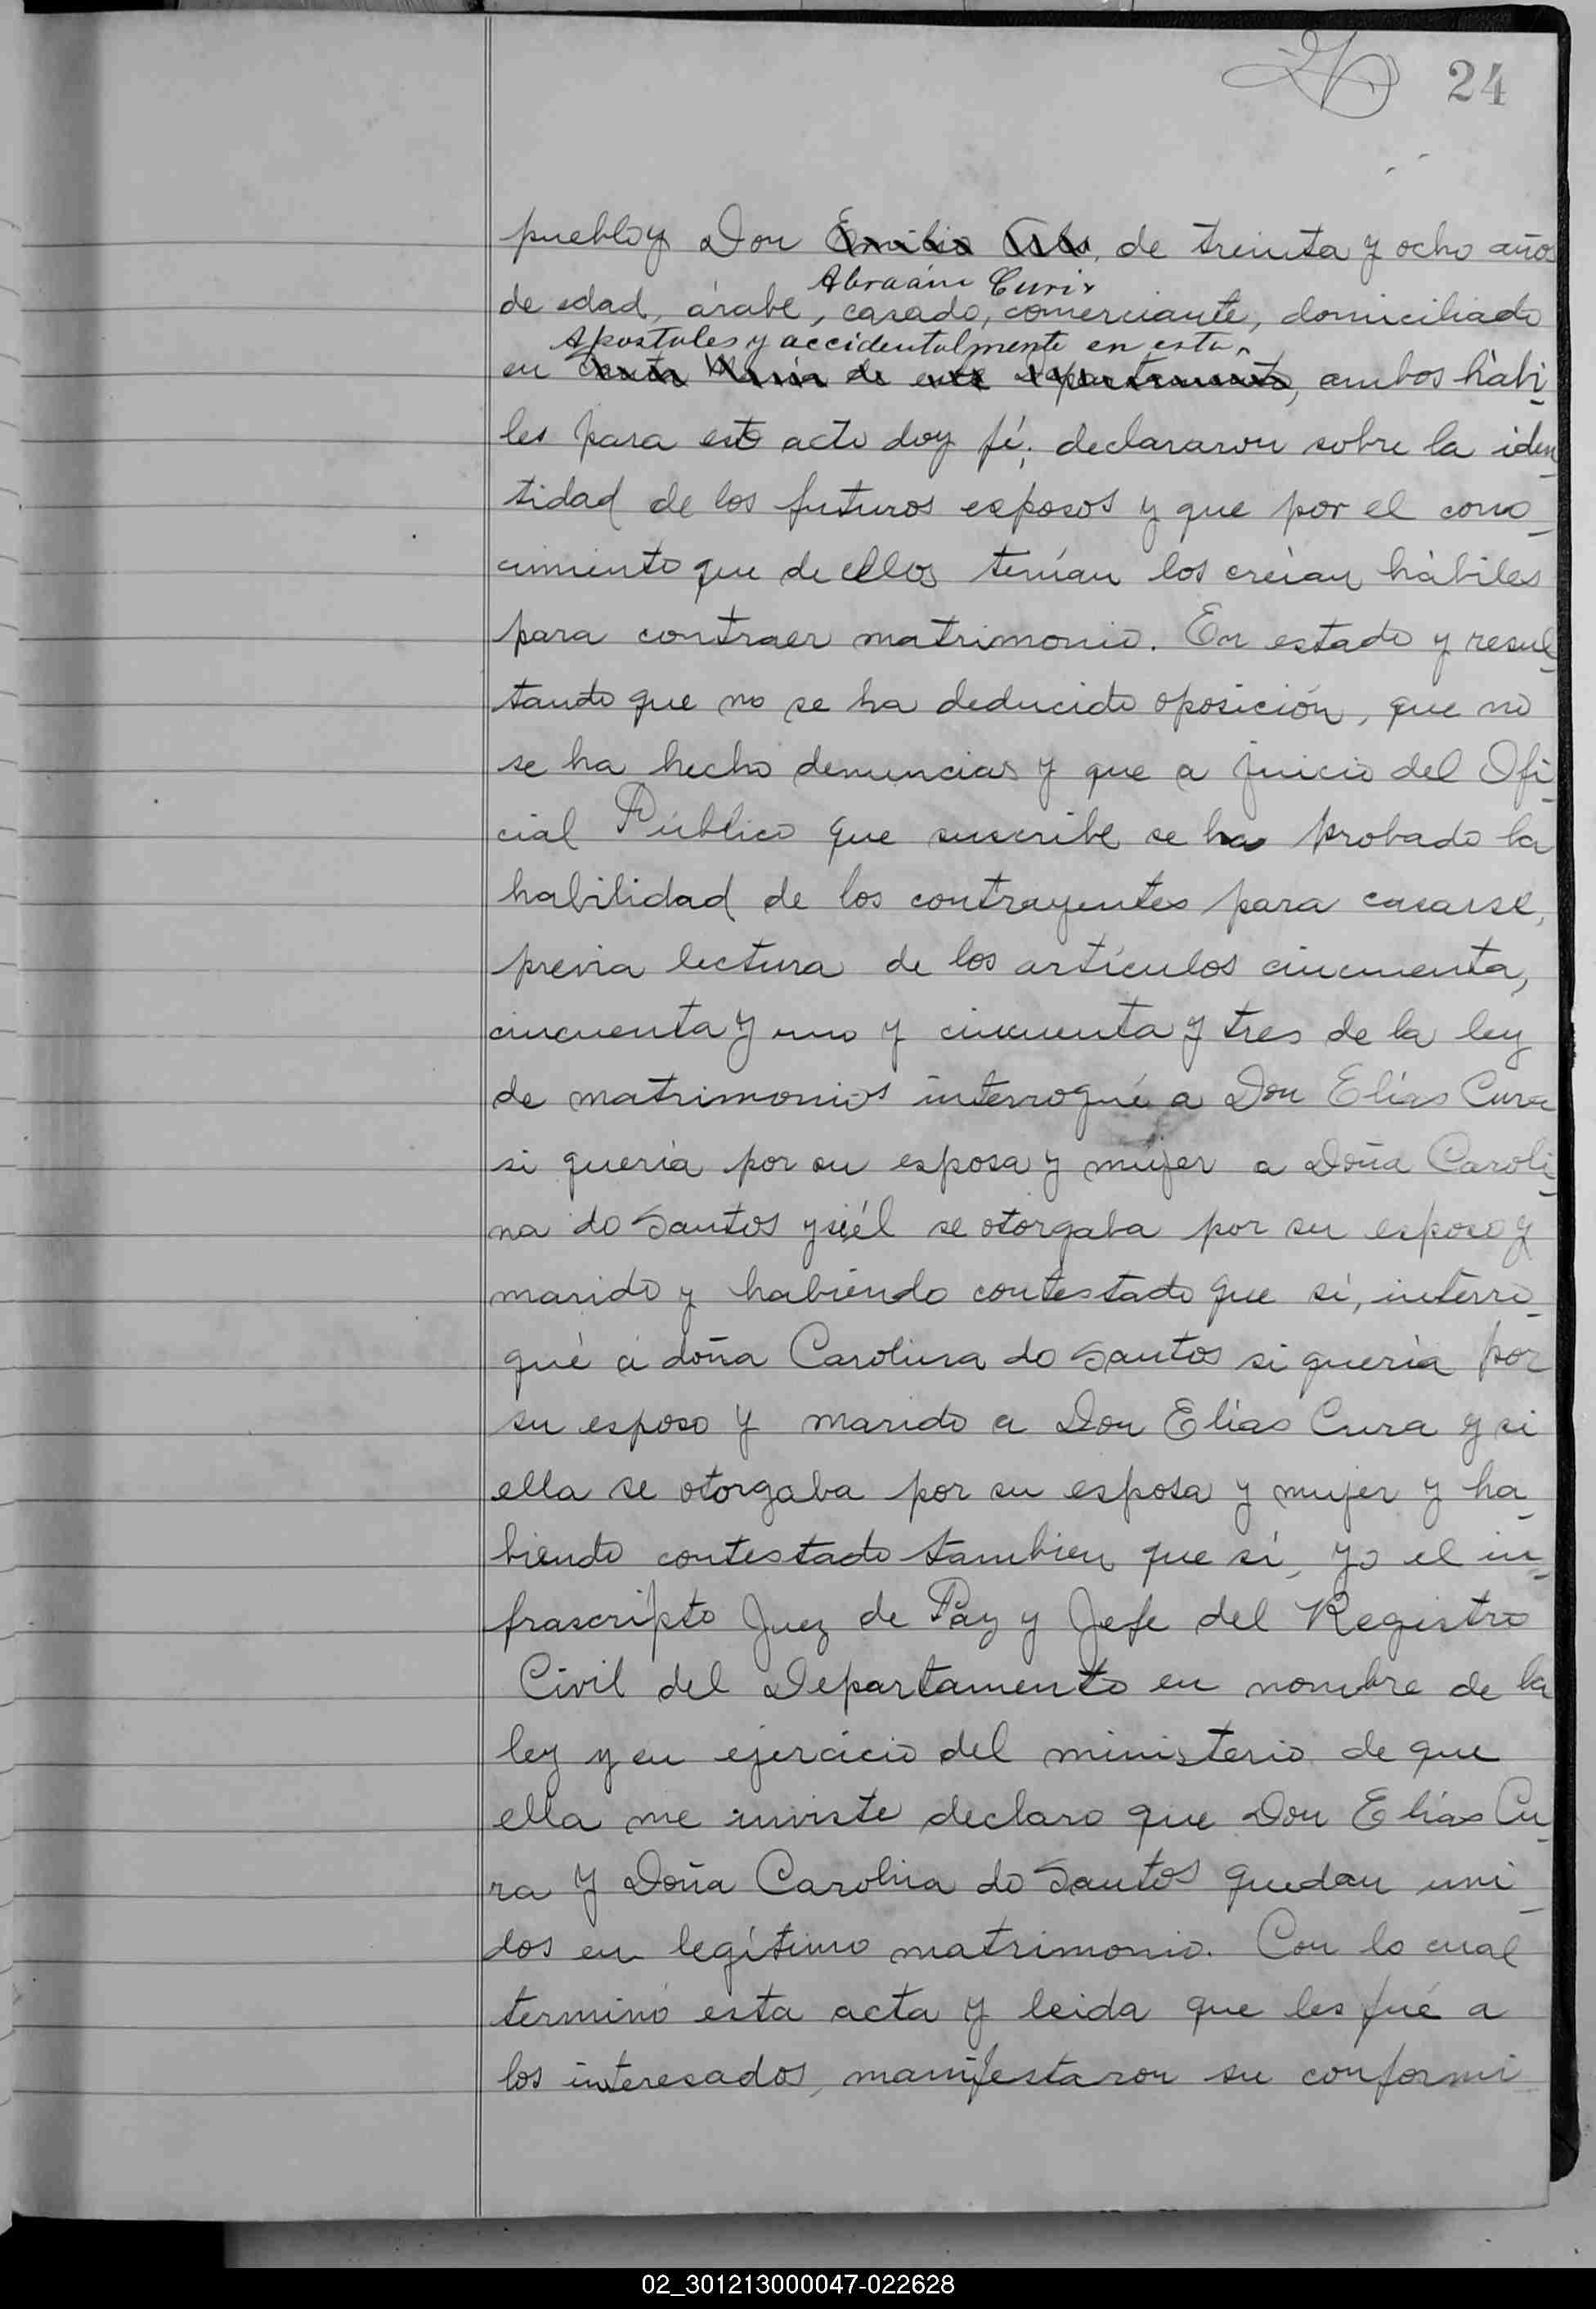 24
pueblo y Don Emilio, de treinta y ocho años
Abraám Curi
de edad, árabe, casado, comerciante, domiciliado
Apostoles y accidentalmente en esta
en Santa María de este Departamento, ambos hábi-
les para este acto doy fé; declararon sobre la iden-
tidad de los futuros esposos y que por el cono-
cimiento que de ellos tenían los creían hábiles
para contraer matrimonio. En estado y resul-
tando que no se ha deducido oposición, que no
se ha hecho denuncias y que a juicio del Ofi-
cial Público que suscribe se ha probado la
habilidad de los contrayentes para casarse,
previa lectura de los artículos cincuenta,
cincuenta y uno y cincuenta y tres de la ley
de matrimonios interrogué a Don Elías Cura
si quería por su esposa y mujer a Doña Caroli-
na do Santos y si él se otorgaba por su esposo y
marido y habiendo contestado que sí, interro-
gué á doña Carolina do Santos si quería por
su esposo y marido a Don Elías Cura y si
ella se otorgaba por su esposa y mujer y ha-
biendo contestado tambien que sí, yo el in-
frascripto Juez de Paz y Jefe del Registro
Civil del Departamento en nombre de la
ley y en ejercicio del ministerio de que
ella me inviste declaro que Don Elías Cu-
ra y Doña Carolina do Santos quedan uni-
dos en legítimo matrimonio. Con lo cual
terminó esta acta y leida que les fué a
los interesados, manifestaron su conformi-
02_301213000047-022628